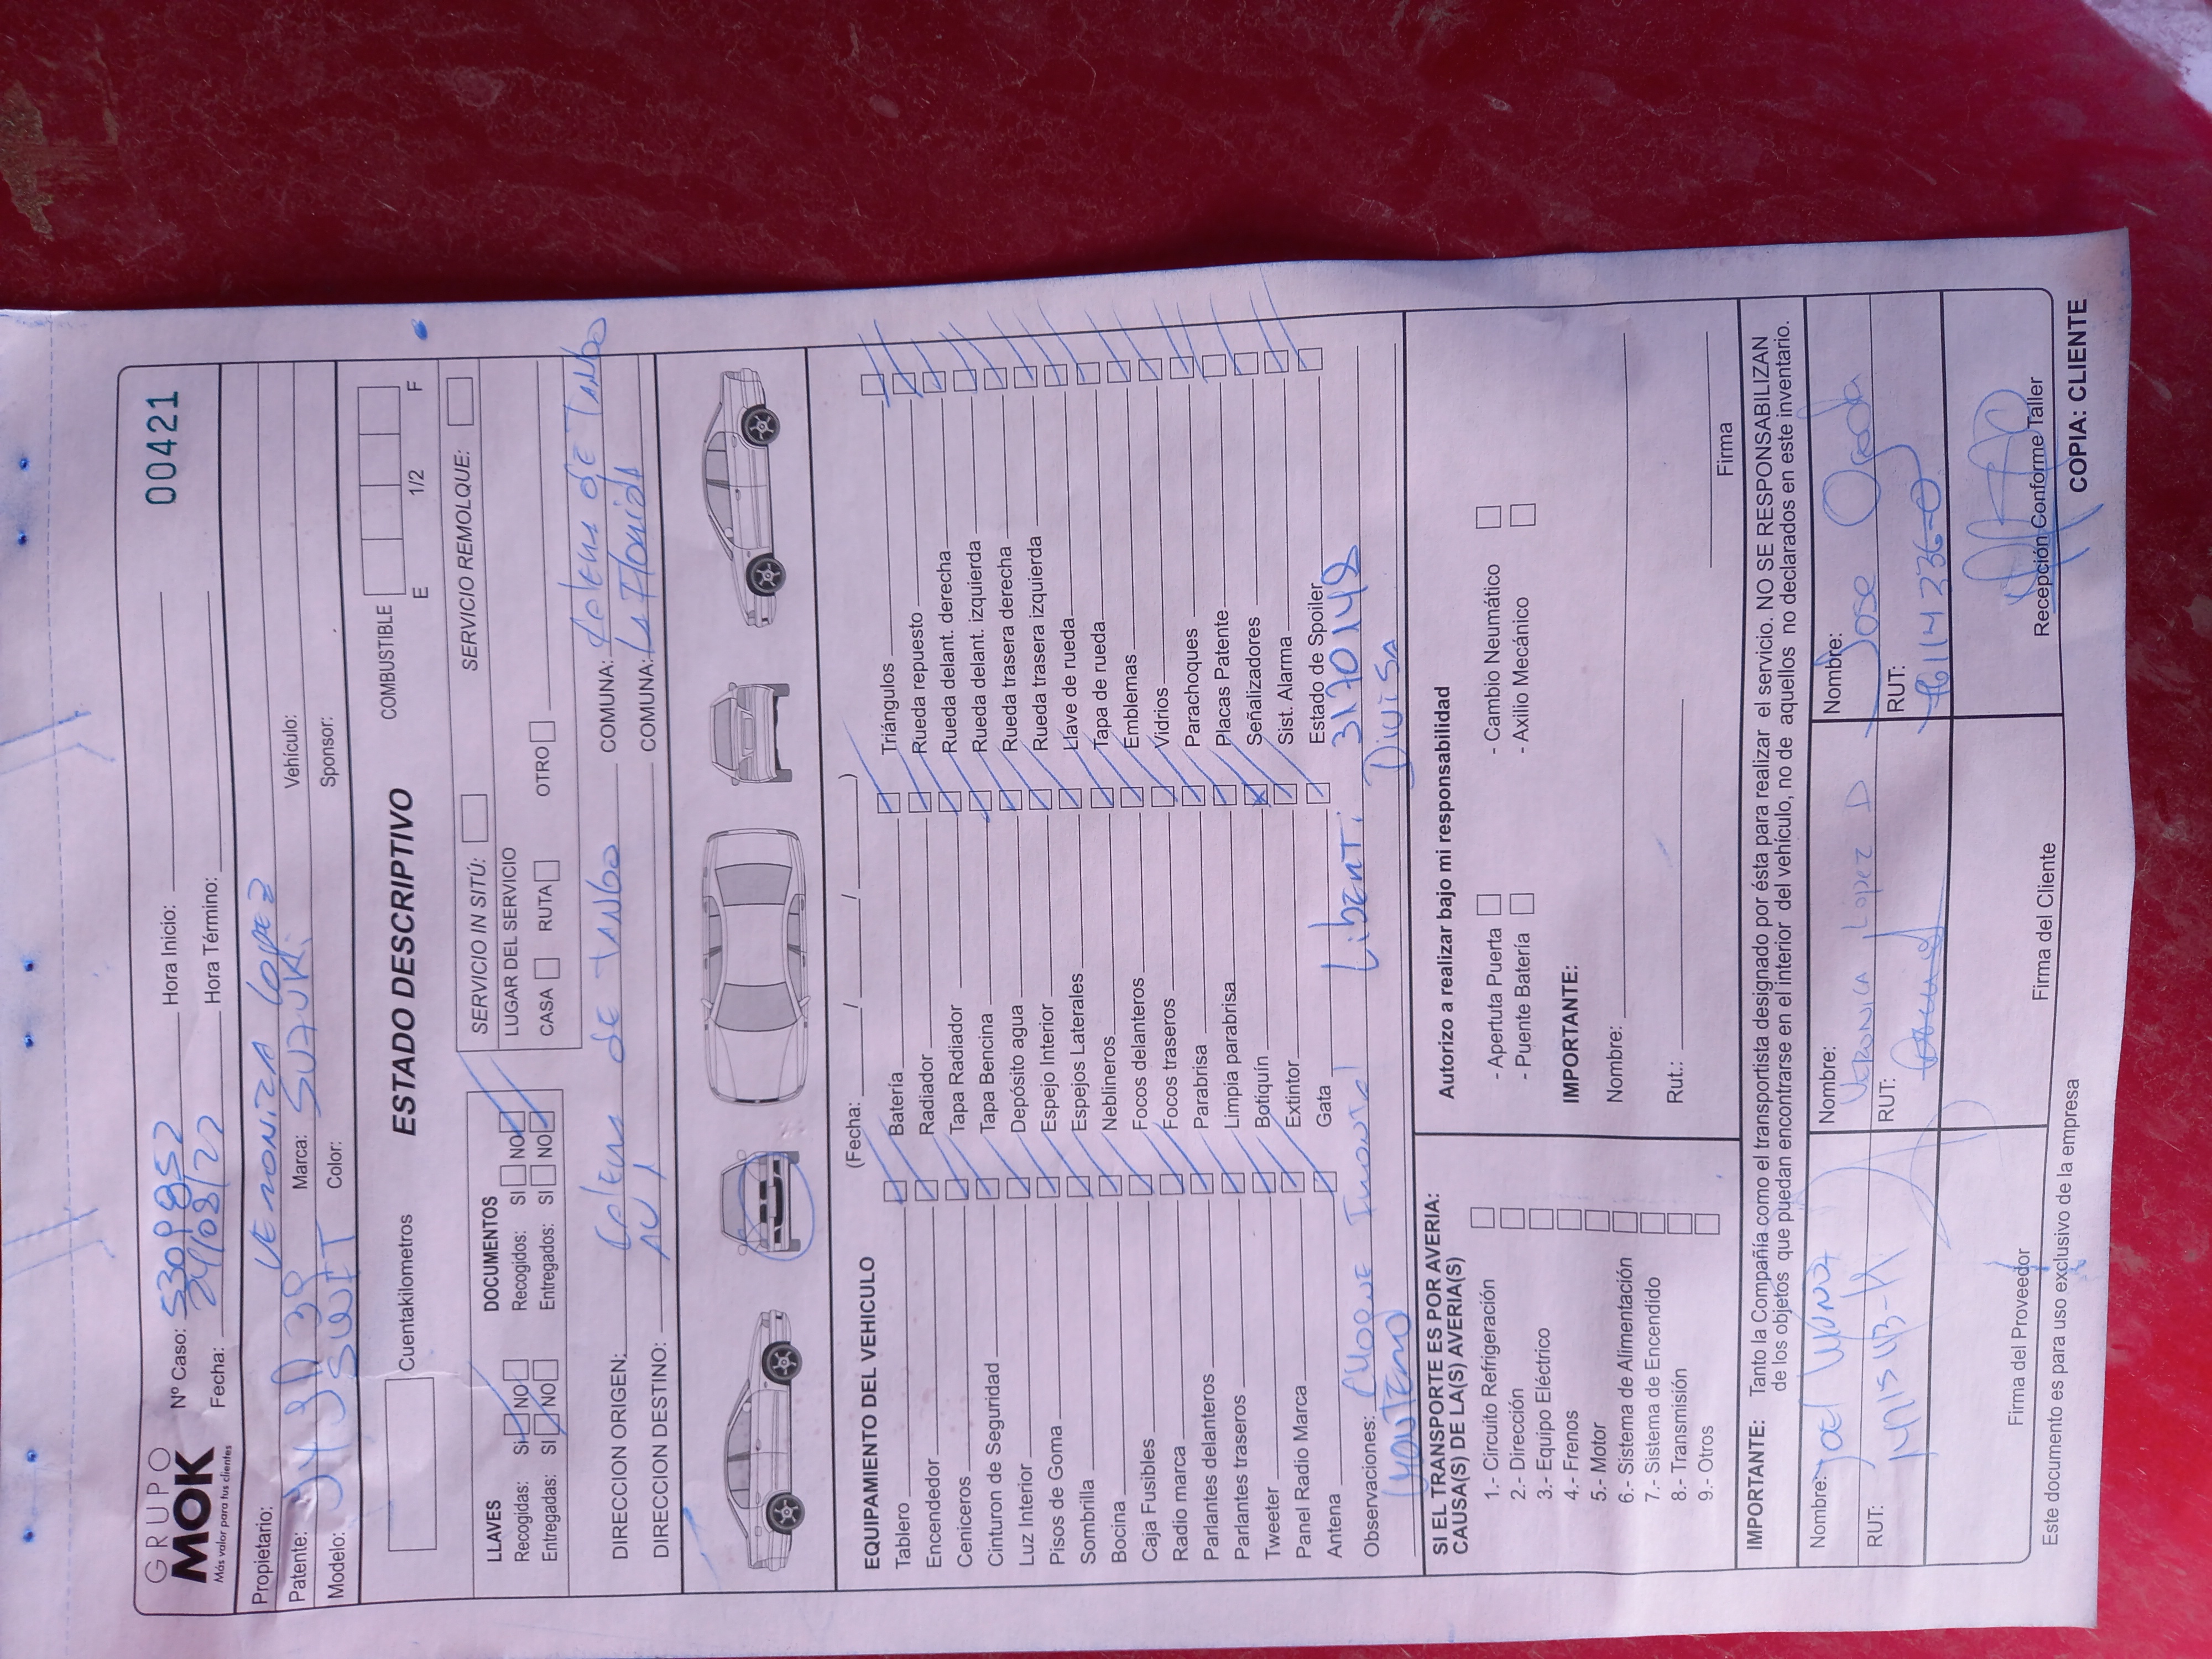 GRUPO
MOK
Más valor para tus clientes
Nº Caso: 5309852 Hora Inicio: 00421
Fecha: 24/03/22 Hora Término:
Propietario: VERONICA Lopez
Patente: Marca: SUZUKI Vehículo:
Modelo: SWIFT Color: Sponsor:
Cuentakilometros ESTADO DESCRIPTIVO COMBUSTIBLE E 1/2 F
LLAVES DOCUMENTOS SERVICIO IN SITÚ: SERVICIO REMOLQUE:
Recogidas: SI NO Recogidos: SI NO LUGAR DEL SERVICIO
Entregadas: SI NO Entregados: SI NO CASA RUTA OTRO
DIRECCION ORIGEN: Calera de Tango COMUNA: Calera de Tango
DIRECCION DESTINO: COMUNA: La Florida
EQUIPAMIENTO DEL VEHICULO (Fecha: / / )
Tablero Batería Triángulos
Encendedor Radiador Rueda repuesto
Ceniceros Tapa Radiador Rueda delant. derecha
Cinturon de Seguridad Tapa Bencina Rueda delant. izquierda
Luz Interior Depósito agua Rueda trasera derecha
Pisos de Goma Espejo Interior Rueda trasera izquierda
Sombrilla Espejos Laterales Llave de rueda
Bocina Neblineros Tapa de rueda
Caja Fusibles Focos delanteros Emblemas
Radio marca Focos traseros Vidrios
Parlantes delanteros Parabrisa Parachoques
Parlantes traseros Limpia parabrisa Placas Patente
Tweeter Botiquín Señalizadores
Panel Radio Marca Extintor Sist. Alarma
Antena Gata Estado de Spoiler
Observaciones: CHOQUE Frontal Libert: 3170142
SI EL TRANSPORTE ES POR AVERIA:
CAUSA(S) DE LA(S) AVERIA(S)
1.- Circuito Refrigeración
2.- Dirección
3.- Equipo Eléctrico
4.- Frenos
5.- Motor
6.- Sistema de Alimentación
7.- Sistema de Encendido
8.- Transmisión
9.- Otros
Autorizo a realizar bajo mi responsabilidad
- Apertuta Puerta - Cambio Neumático
- Puente Batería - Axilio Mecánico
IMPORTANTE:
Nombre:
Rut.: Firma
IMPORTANTE: Tanto la Compañía como el transportista designado por ésta para realizar el servicio. NO SE RESPONSABILIZAN
de los objetos que puedan encontrarse en el interior del vehículo, no de aquellos no declarados en este inventario.
Nombre: JOEL Nombre: VERONICA LOPEZ D Nombre: Jose
RUT: RUT: RUT:
Firma del Proveedor Firma del Cliente Recepción Conforme Taller
Este documento es para uso exclusivo de la empresa COPIA: CLIENTE